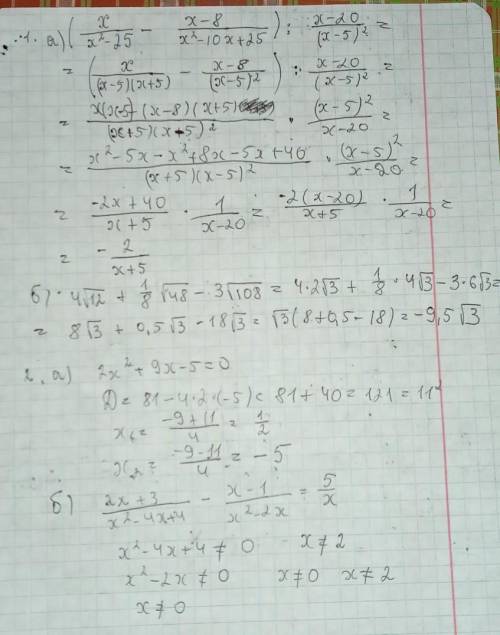 1. а) (x/(x²-25) - (x-8)/(x²-10x+25)) : (x-20)/(x-5)² =
= (x/((x-5)(x+5)) - (x-8)/(x-5)²) : (x-20)/(x-5)² =
= (x(x-5)-(x-8)(x+5))/((x+5)(x-5)²) · (x-5)²/(x-20) =
= (x²-5x-x²+8x-5x+40)/((x+5)(x-5)²) · (x-5)²/(x-20) =
= (-2x+40)/(x+5) · 1/(x-20) = -2(x-20)/(x+5) · 1/(x-20) =
= - 2/(x+5)
б) 4√12 + 1/8 √48 - 3√108 = 4·2√3 + 1/8 · 4√3 - 3·6√3 =
= 8√3 + 0,5√3 - 18√3 = √3(8+0,5-18) = -9,5√3
2. а) 2x²+9x-5=0
D = 81-4·2·(-5) = 81+40 = 121 = 11²
x₁ = (-9+11)/4 = 1/2
x₂ = (-9-11)/4 = -5
б) (2x+3)/(x²-4x+4) - (x-1)/(x²-2x) = 5/x
x²-4x+4 ≠ 0 x ≠ 2
x²-2x ≠ 0 x ≠ 0 x ≠ 2
x ≠ 0